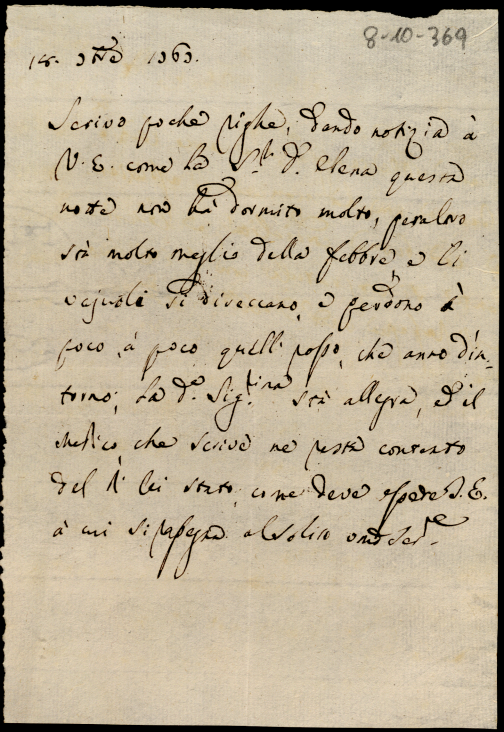 8-10-369
18. 1763.
Scrivo poche righe, dando notizia à
V. E. come la D. Elena questa
notte non hà dormito molto, peraltro
stà molto meglio della febbre e li
vajuoli si diseccano, e perdono à
poco, à poco quelli rosso, che anno d'in-
torno, La d.ª Sig.rina stà allegra, ed il
Medico, che scrive ne resta contento
del di lei stato, come deve essere S. E.
à cui si rassegna al solito um.